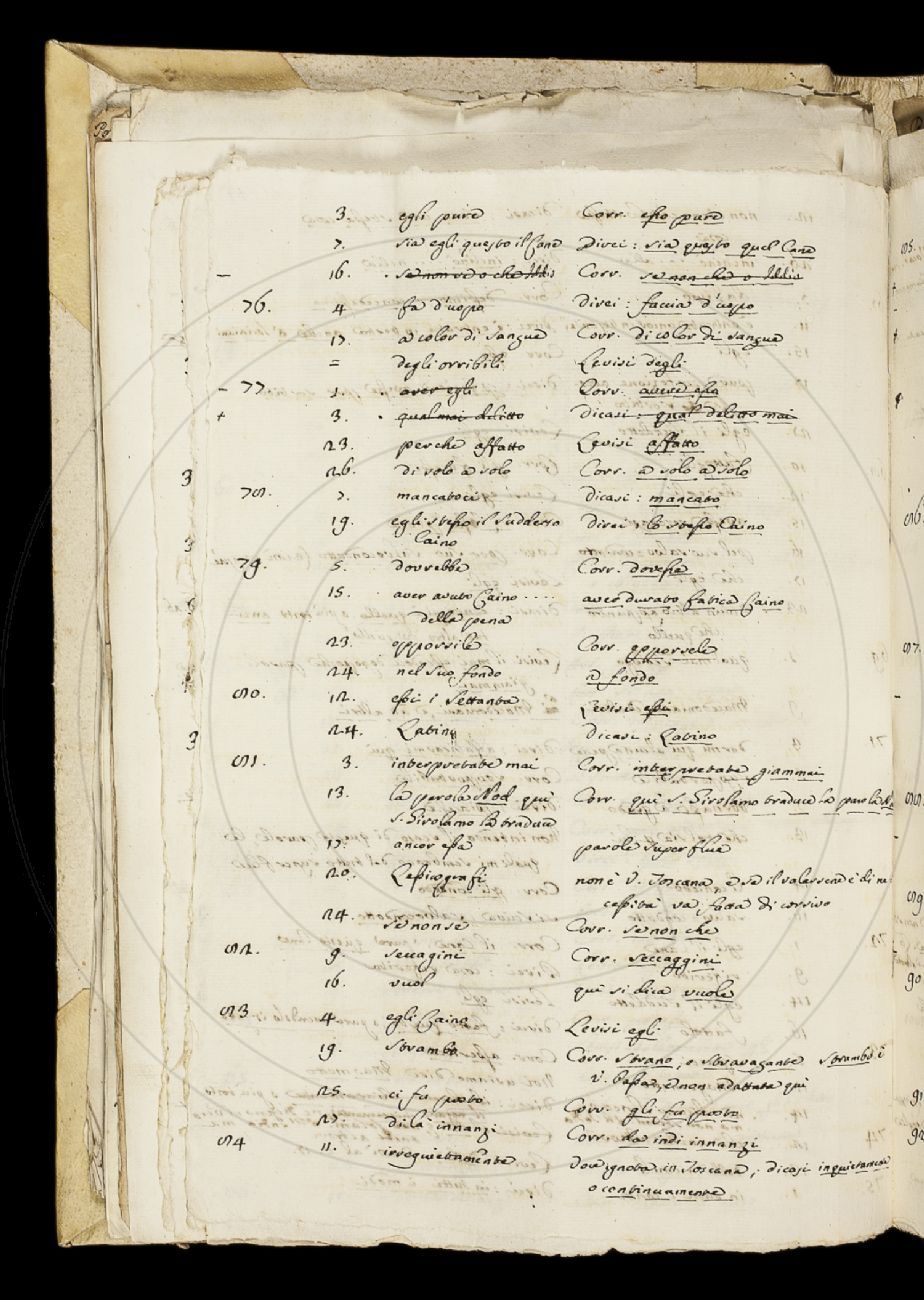 3. egli pure Corr. esso pure
7. sia egli questo il Cane Direi: sia questo quel Cane
- 16. . se non se o che Iddio Corr. se non che o Iddio
76. 4 fa d'uopo Direi: faccia d'uopo
17. a color di sangue Corr. di color di sangue
= degli orribili Levisi degli
- 77. 1. . aver egli Corr. avere esso
+ 3. . qual mai delitto Dicasi: qual delitto mai
23. perchè affatto Levisi affatto
26. di solo a solo Corr. a solo a solo
78. 7. mancatoci Dicasi: mancato
19. egli stesso il suddetto Direi: lo stesso Caino
Caino
79. 5. dovrebbe Corr. dovesse
15. aver avuto Caino .... aver durato fatica Caino
della pena
23. opporsile Corr. opporsele
24. nel suo fondo a fondo
80. 12. essi i Settanta Levisi essi
24. Latini Dicasi: Latino
81. 3. interpretate mai Corr. interpretate giammai
13. la parola Nod qui Corr. qui S. Girolamo traduce la parola
S. Girolamo la traduce
17. ancor essa parole superflue
20. Lessicografi non è V. Toscana, e se il valersene è di ne
cessità va fatta di corsivo
24. se non se Corr. se non che
82. 9. seccagini Corr. seccaggini
16. vuol qui si dica vuole
83 4 egli Caino Levisi egli
19. strambo Corr. strano, o stravagante strambo è
V. bassa, e non adattata qui
25. ci fu posto Corr. gli fu posto
27. di là innanzi Corr. da indi innanzi
84 11. irrequietamente Voce ignota in Toscana; dicasi inquietamente
o continuamente